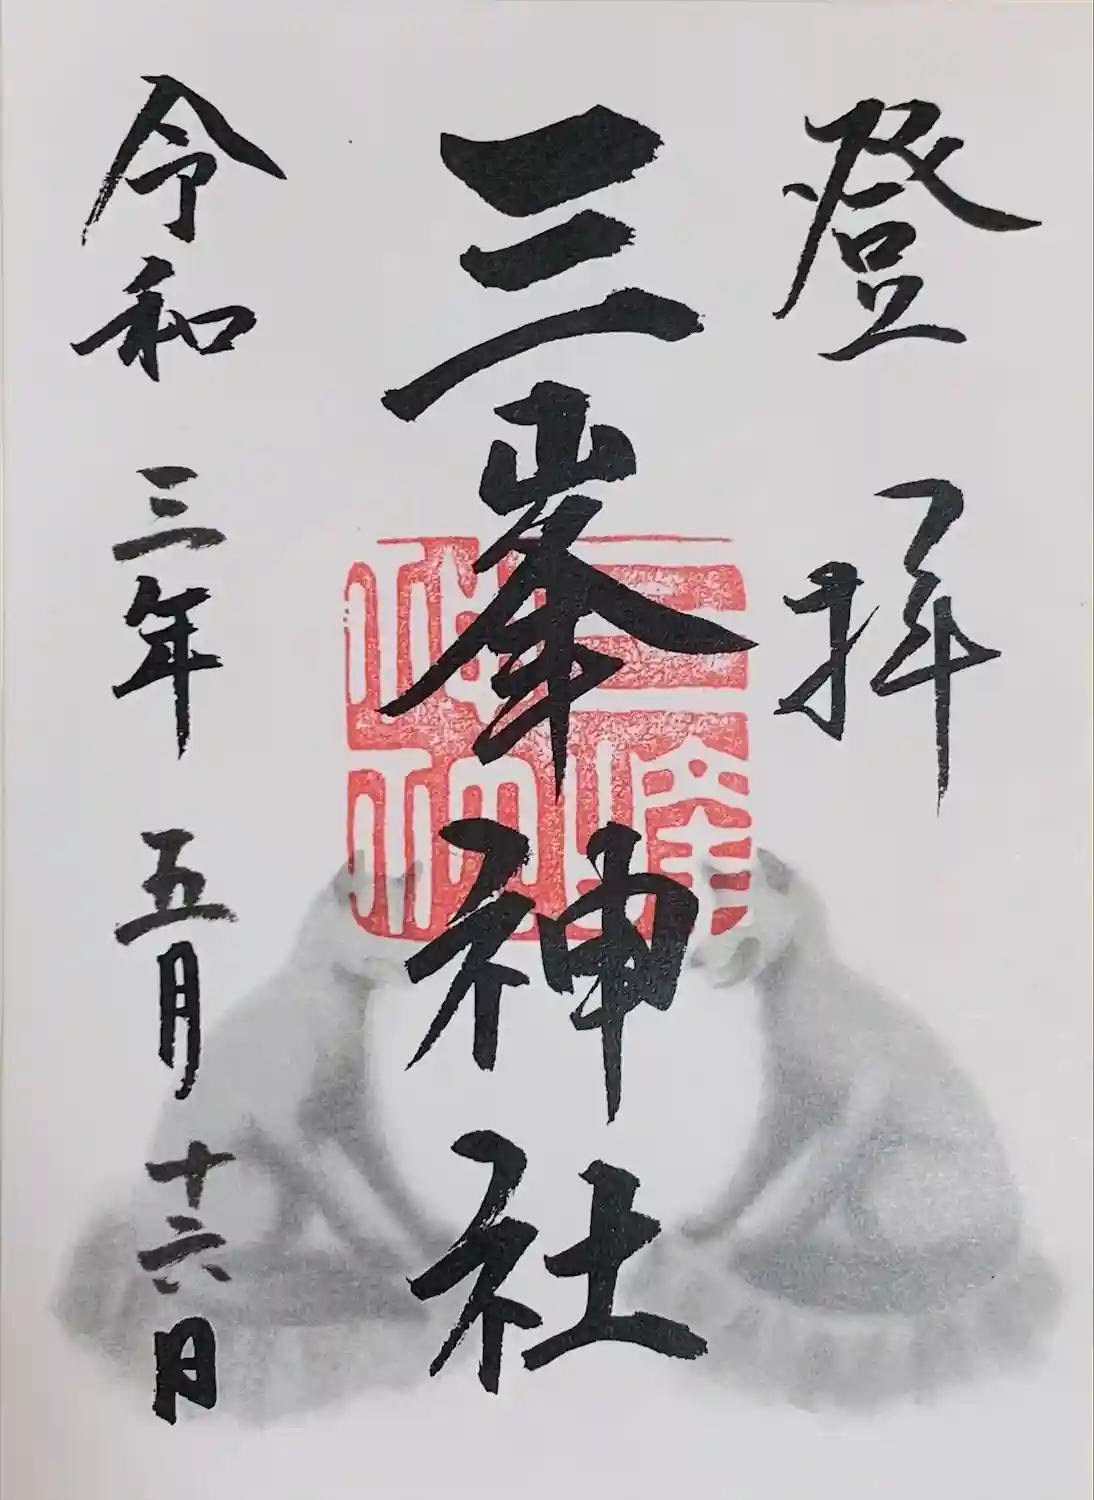 登拝
三峯神社
三峯神社
令和三年五月十六日